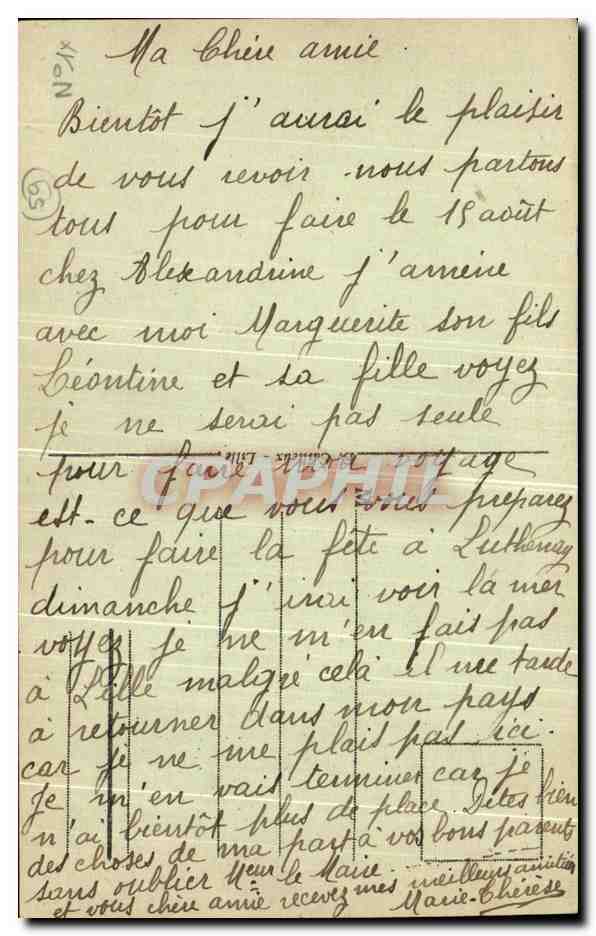 Ma Chère amie.
Bientôt j'aurai le plaisir
de vous revoir nous partons
tous pour faire le 15 août
chez Alexandrine j'amène
avec moi Marguerite son fils
Léontine et sa fille voyez
je ne serai pas seule
pour faire mon voyage
est-ce que vous vous preparez
pour faire la fête à Luthenay
dimanche j'irai voir la mer
voyez je ne m'en fais pas
à Lille malgré celà il me tarde
à retourner dans mon pays
car je ne me plais pas ici.
Je m'en vais terminer car je
n'ai bientôt plus de place. Dites bien
des choses de ma part à vos bons parents
sans oublier Meur le Maire
et vous chère amie recevez mes meilleurs amitiés
Marie-Thérèse
59
CPAPHIL
Lille